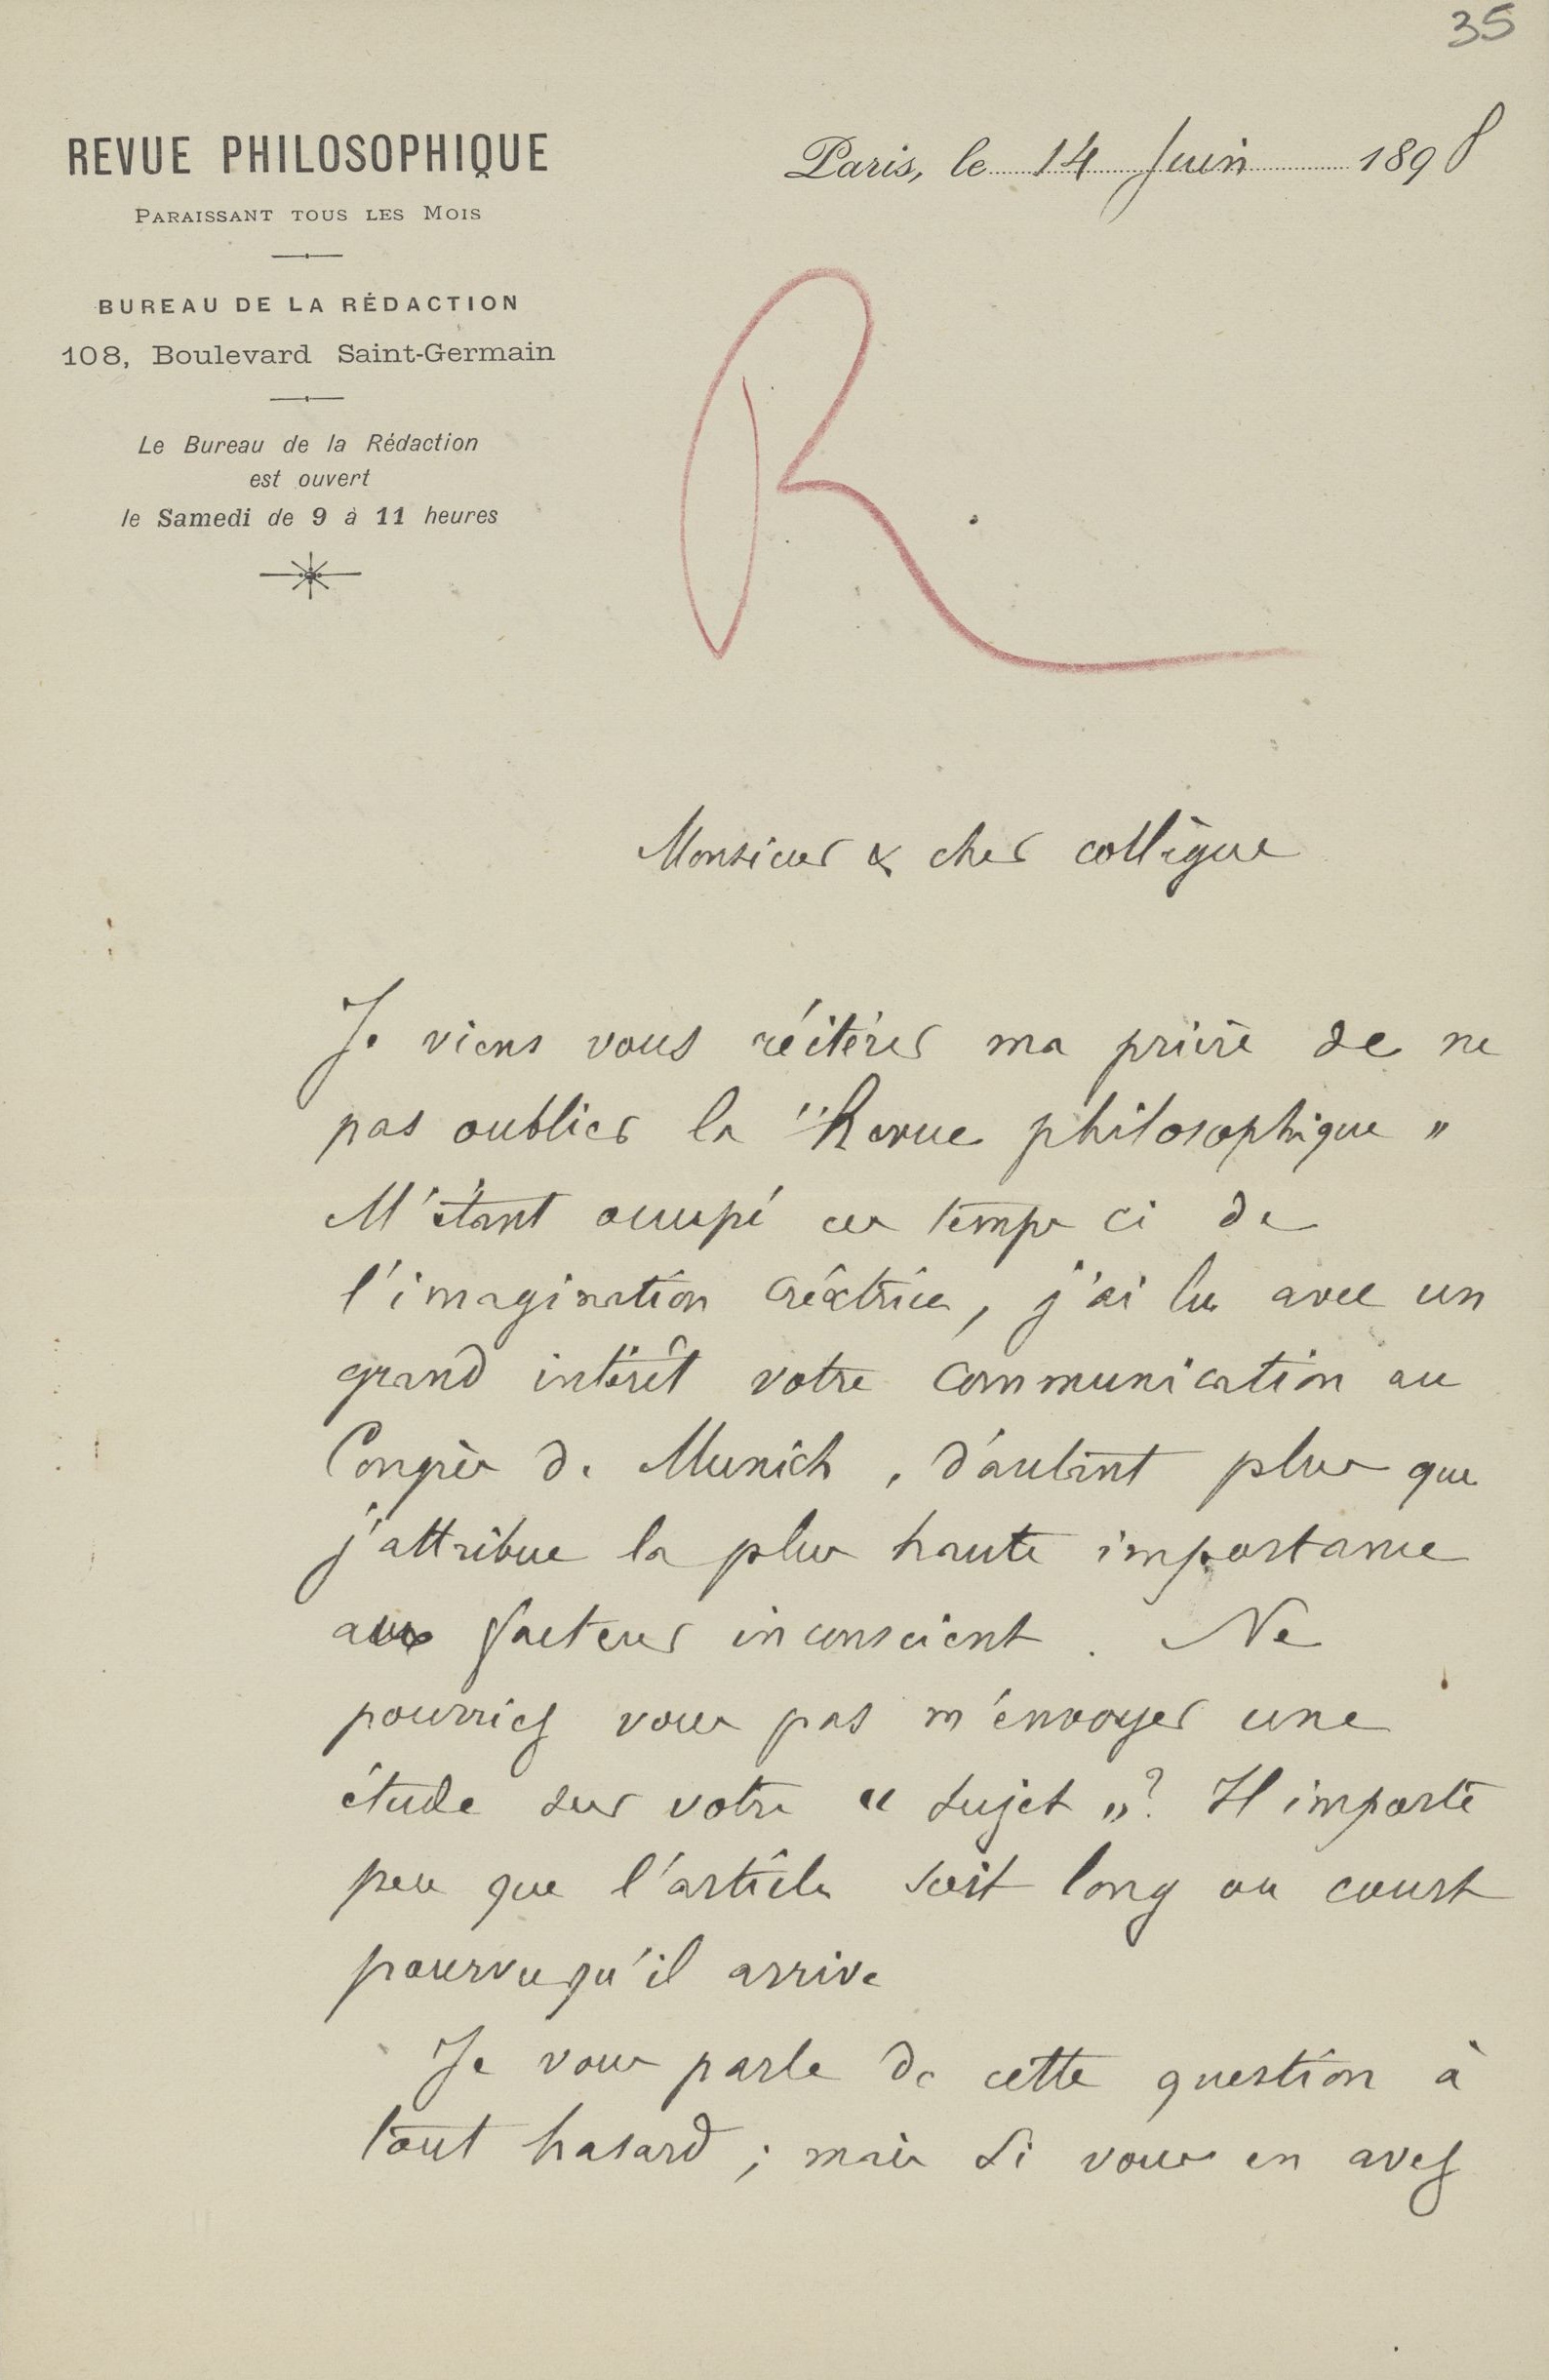 35
REVUE PHILOSOPHIQUE
PARAISSANT TOUS LES MOIS
BUREAU DE LA RÉDACTION
108, Boulevard Saint-Germain
Le Bureau de la Rédaction
est ouvert
le Samedi de 9 à 11 heures
Paris, le 14 Juin 1898
R
Monsieur & cher collègue
Je viens vous réitérer ma prière de ne
pas oublier la "Revue philosophique"
M'étant occupé ces temps ci de
l'imagination créatrice, j'ai lu avec un
grand intérêt votre communication au
Congrès de Munich, d'autant plus que
j'attribue la plus haute importance
aux facteur inconscient. Ne
pourriez vous pas m'envoyer une
étude sur votre « sujet »? Il importe
peu que l'article soit long ou court
pourvu qu'il arrive
Je vous parle de cette question à
tout hasard ; mais si vous en avez